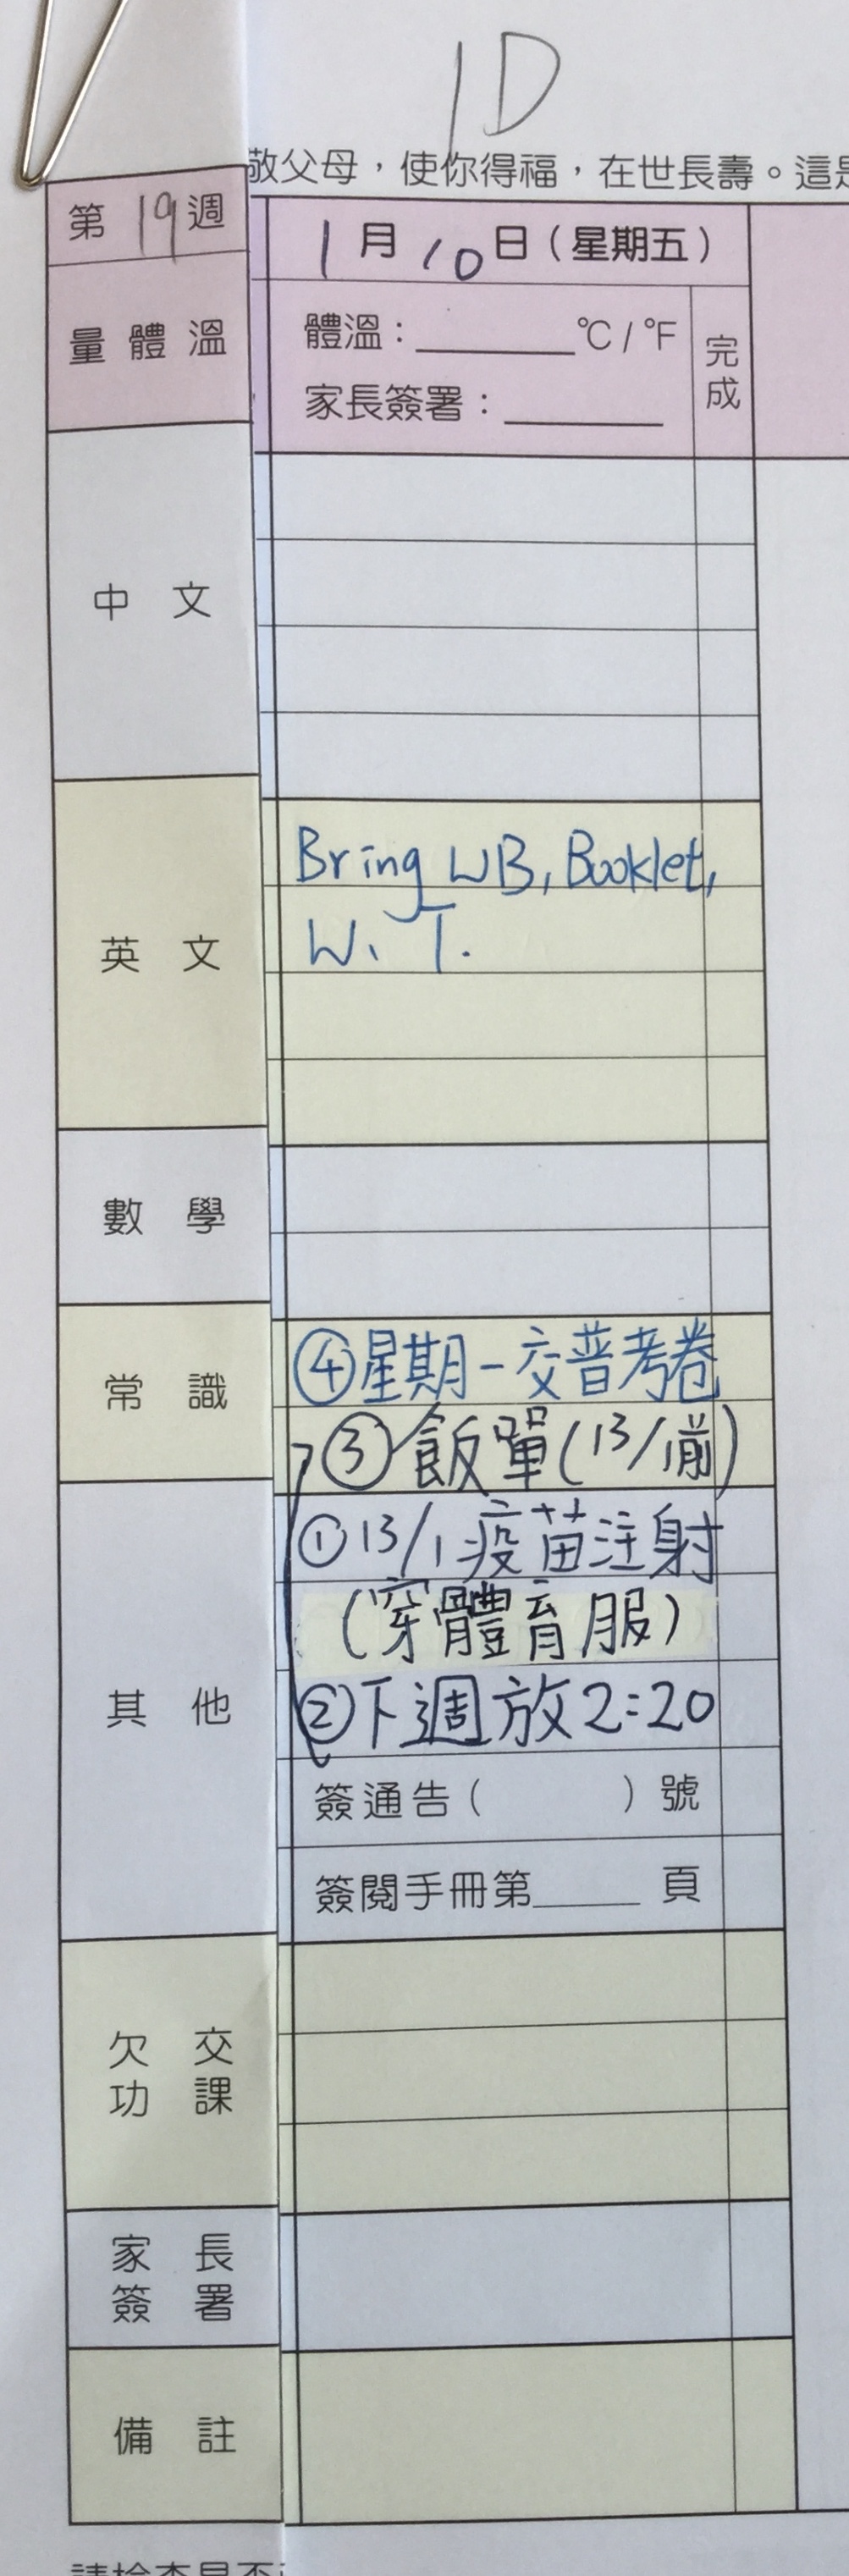 1D
敬父母，使你得福，在世長壽。這是
第19週
1月10日（星期五）
量體溫
體溫：______°C / °F
家長簽署：______
完成
中文
英文
Bring WB, Booklet,
W. T.
數學
常識
④星期一交普考卷
③飯單(13/1前)
其他
①13/1疫苗注射
(穿體育服)
②下週放2:20
簽通告（　　　）號
簽閱手冊第_____頁
欠交
功課
家長
簽署
備註